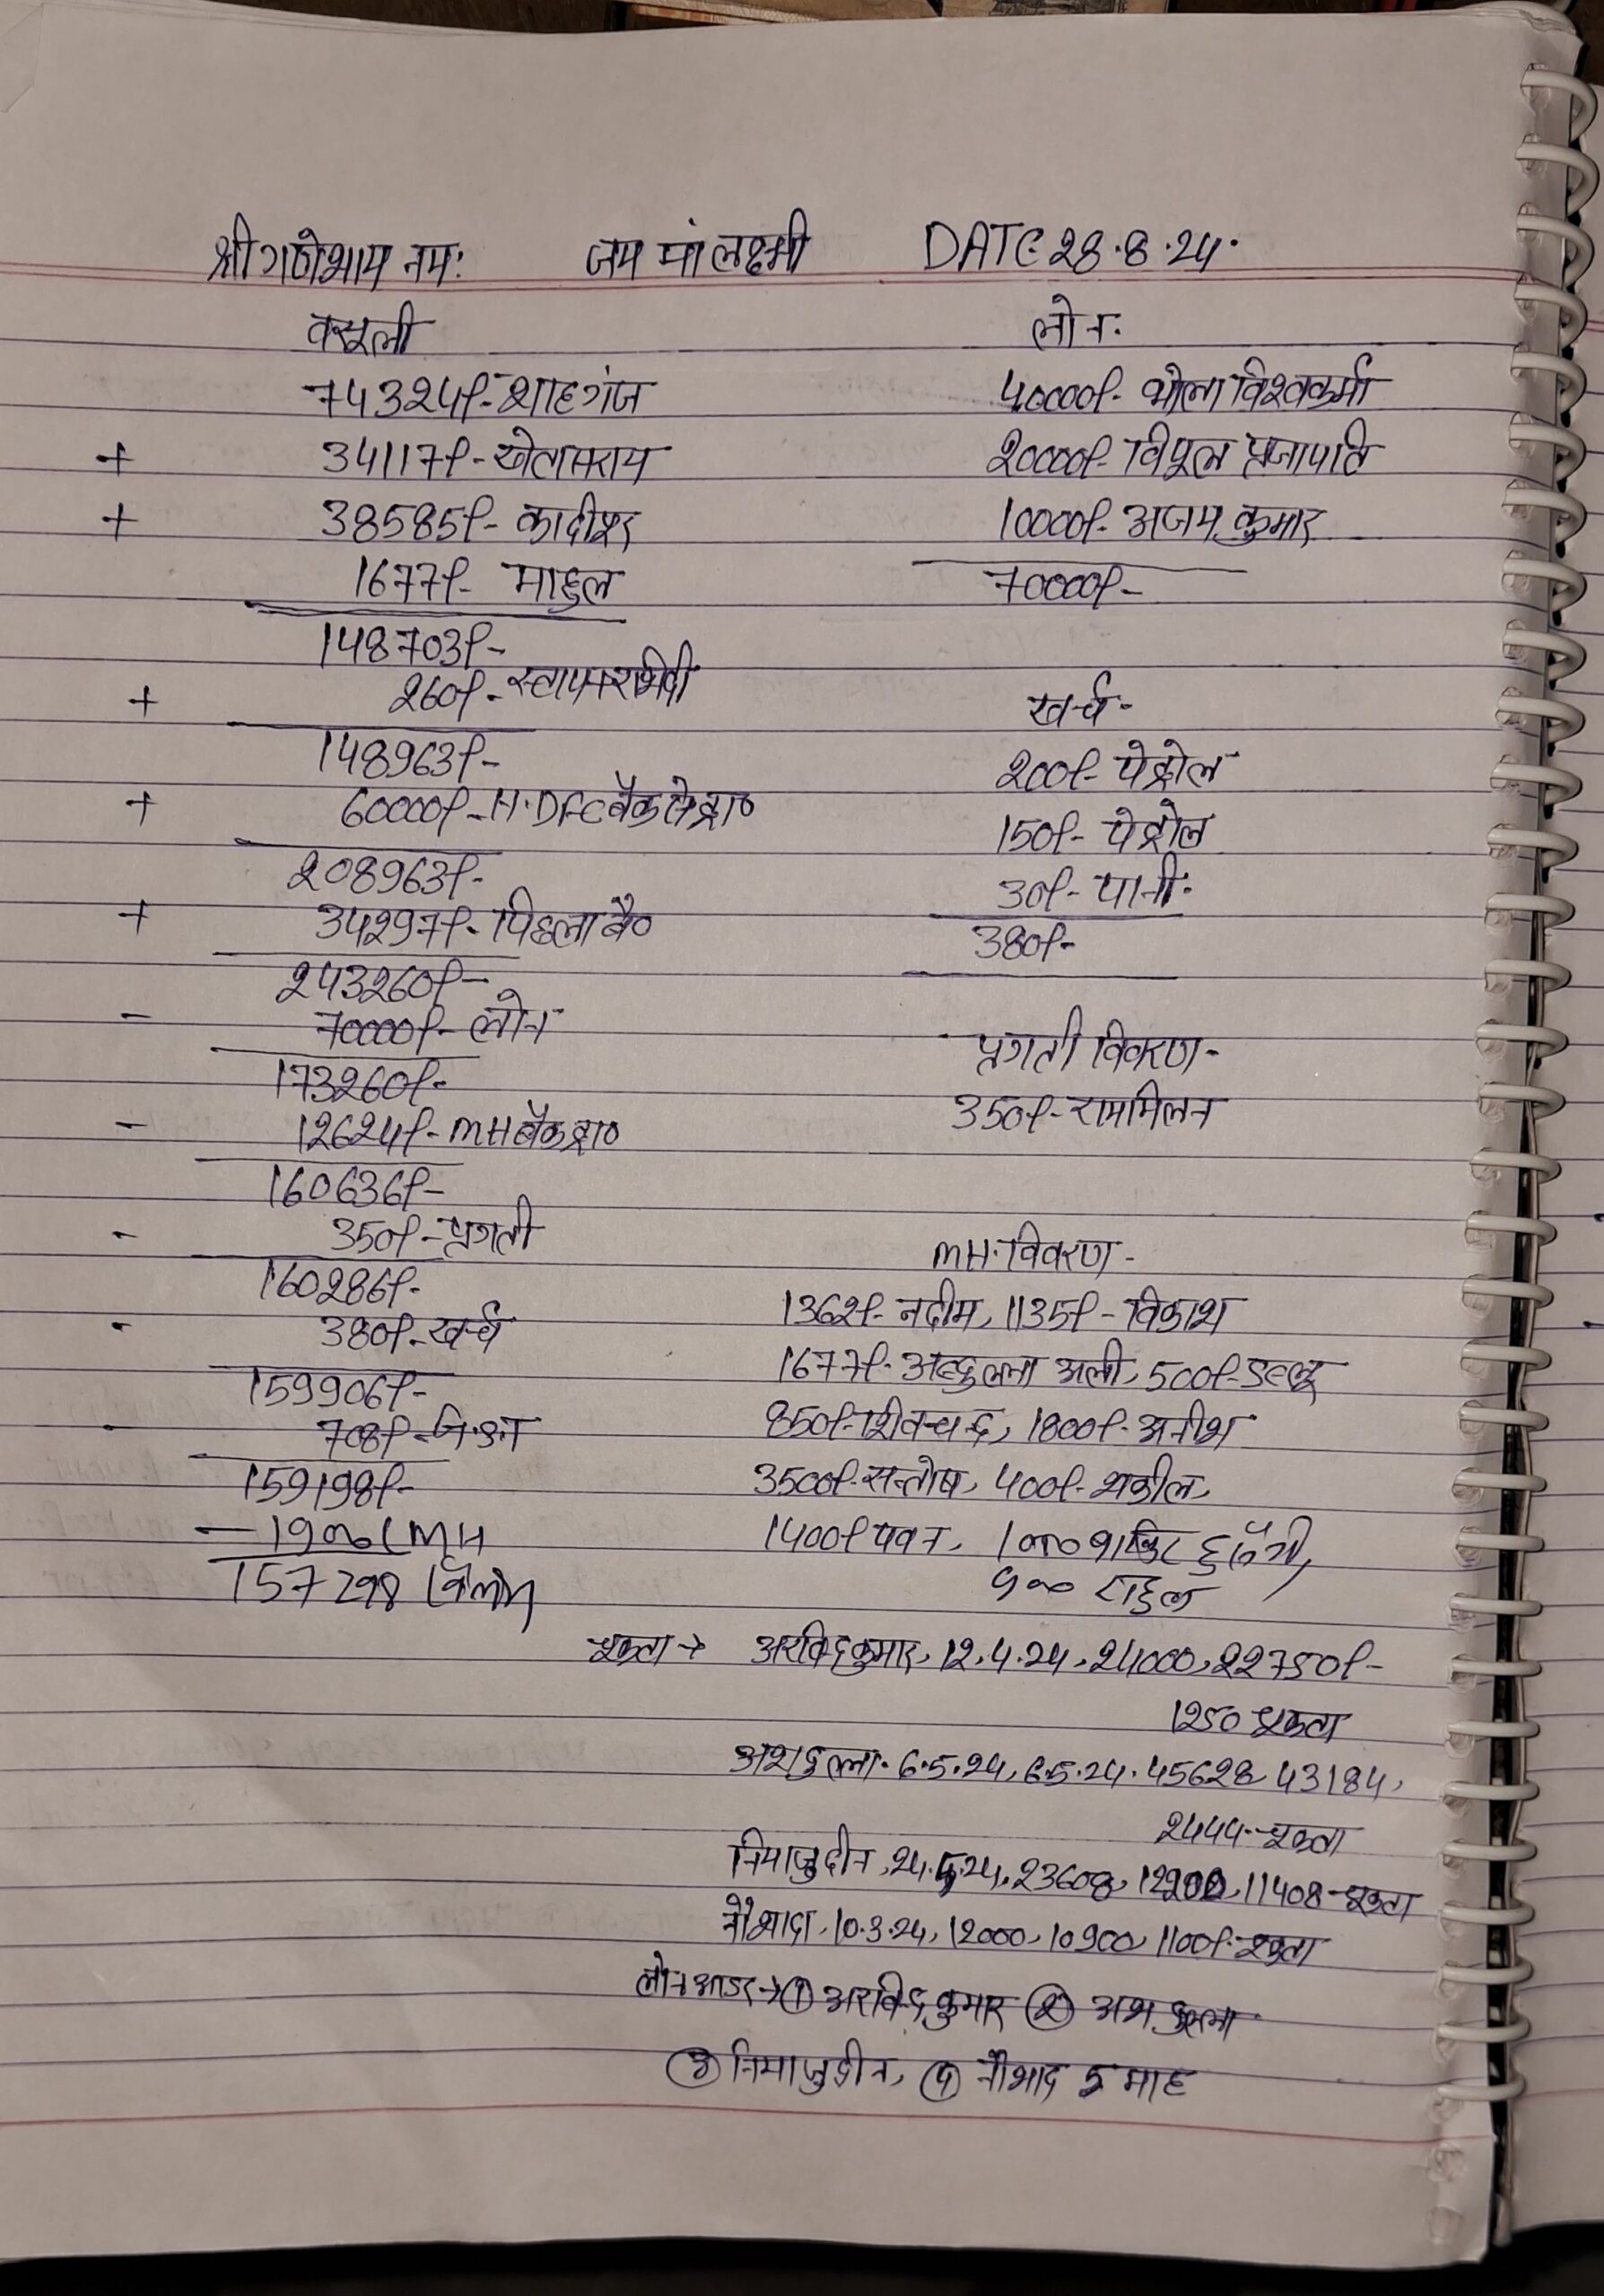 श्री गणेशाय नमः जय मां लक्ष्मी DATE 28.8.24.
वसूली
74324/- शाहगंज
+ 34117/- खेतासराय
+ 38585/- कादीपुर
1677/- माहुल
148703/-
+ 260/- स्टाफ
148963/-
+ 60000/- H.DFC बैंक से ट्रा०
208963/-
+ 34297/- पिछला बै०
243260/-
- 70000/- लोन
173260/-
- 12624/- MH बैंक ट्रा०
160636/-
- 350/- प्रगती
160286/-
- 380/- खर्च
159906/-
- 708/-
159198/-
- 1900 (MH
157298
लोन.
40000/- भोला विश्वकर्मा
20000/- विपुल प्रजापति
10000/- अजय कुमार
70000/-
खर्च-
200/- पेट्रोल
150/- पेट्रोल
30/- पानी.
380/-
प्रगती विवरण-
350/- राममिलन
MH. विवरण-
1362/- नदीम, 1135/- विकाश
1677/- अली, 500/-
850/- शिवचन्द, 1800/- अनीश
3500/- सन्तोष, 400/- शकील,
1400/- पवन, 1000
५०० राहुल
चुकता → अरविंद कुमार, 12.4.24, 24000, 22750/-
1250 चुकता
6.5.24, 6.5.24. 45628 43184,
2444- चुकता
नियाजुद्दीन, 24.5.24, 23608, 12200, 11408- चुकता
नौशाद, 10.3.24, 12000, 10900, 1100/- चुकता
लोन आडर → ① अरविंद कुमार ②
③ नियाजुद्दीन, ④ नौशाद 5 माह